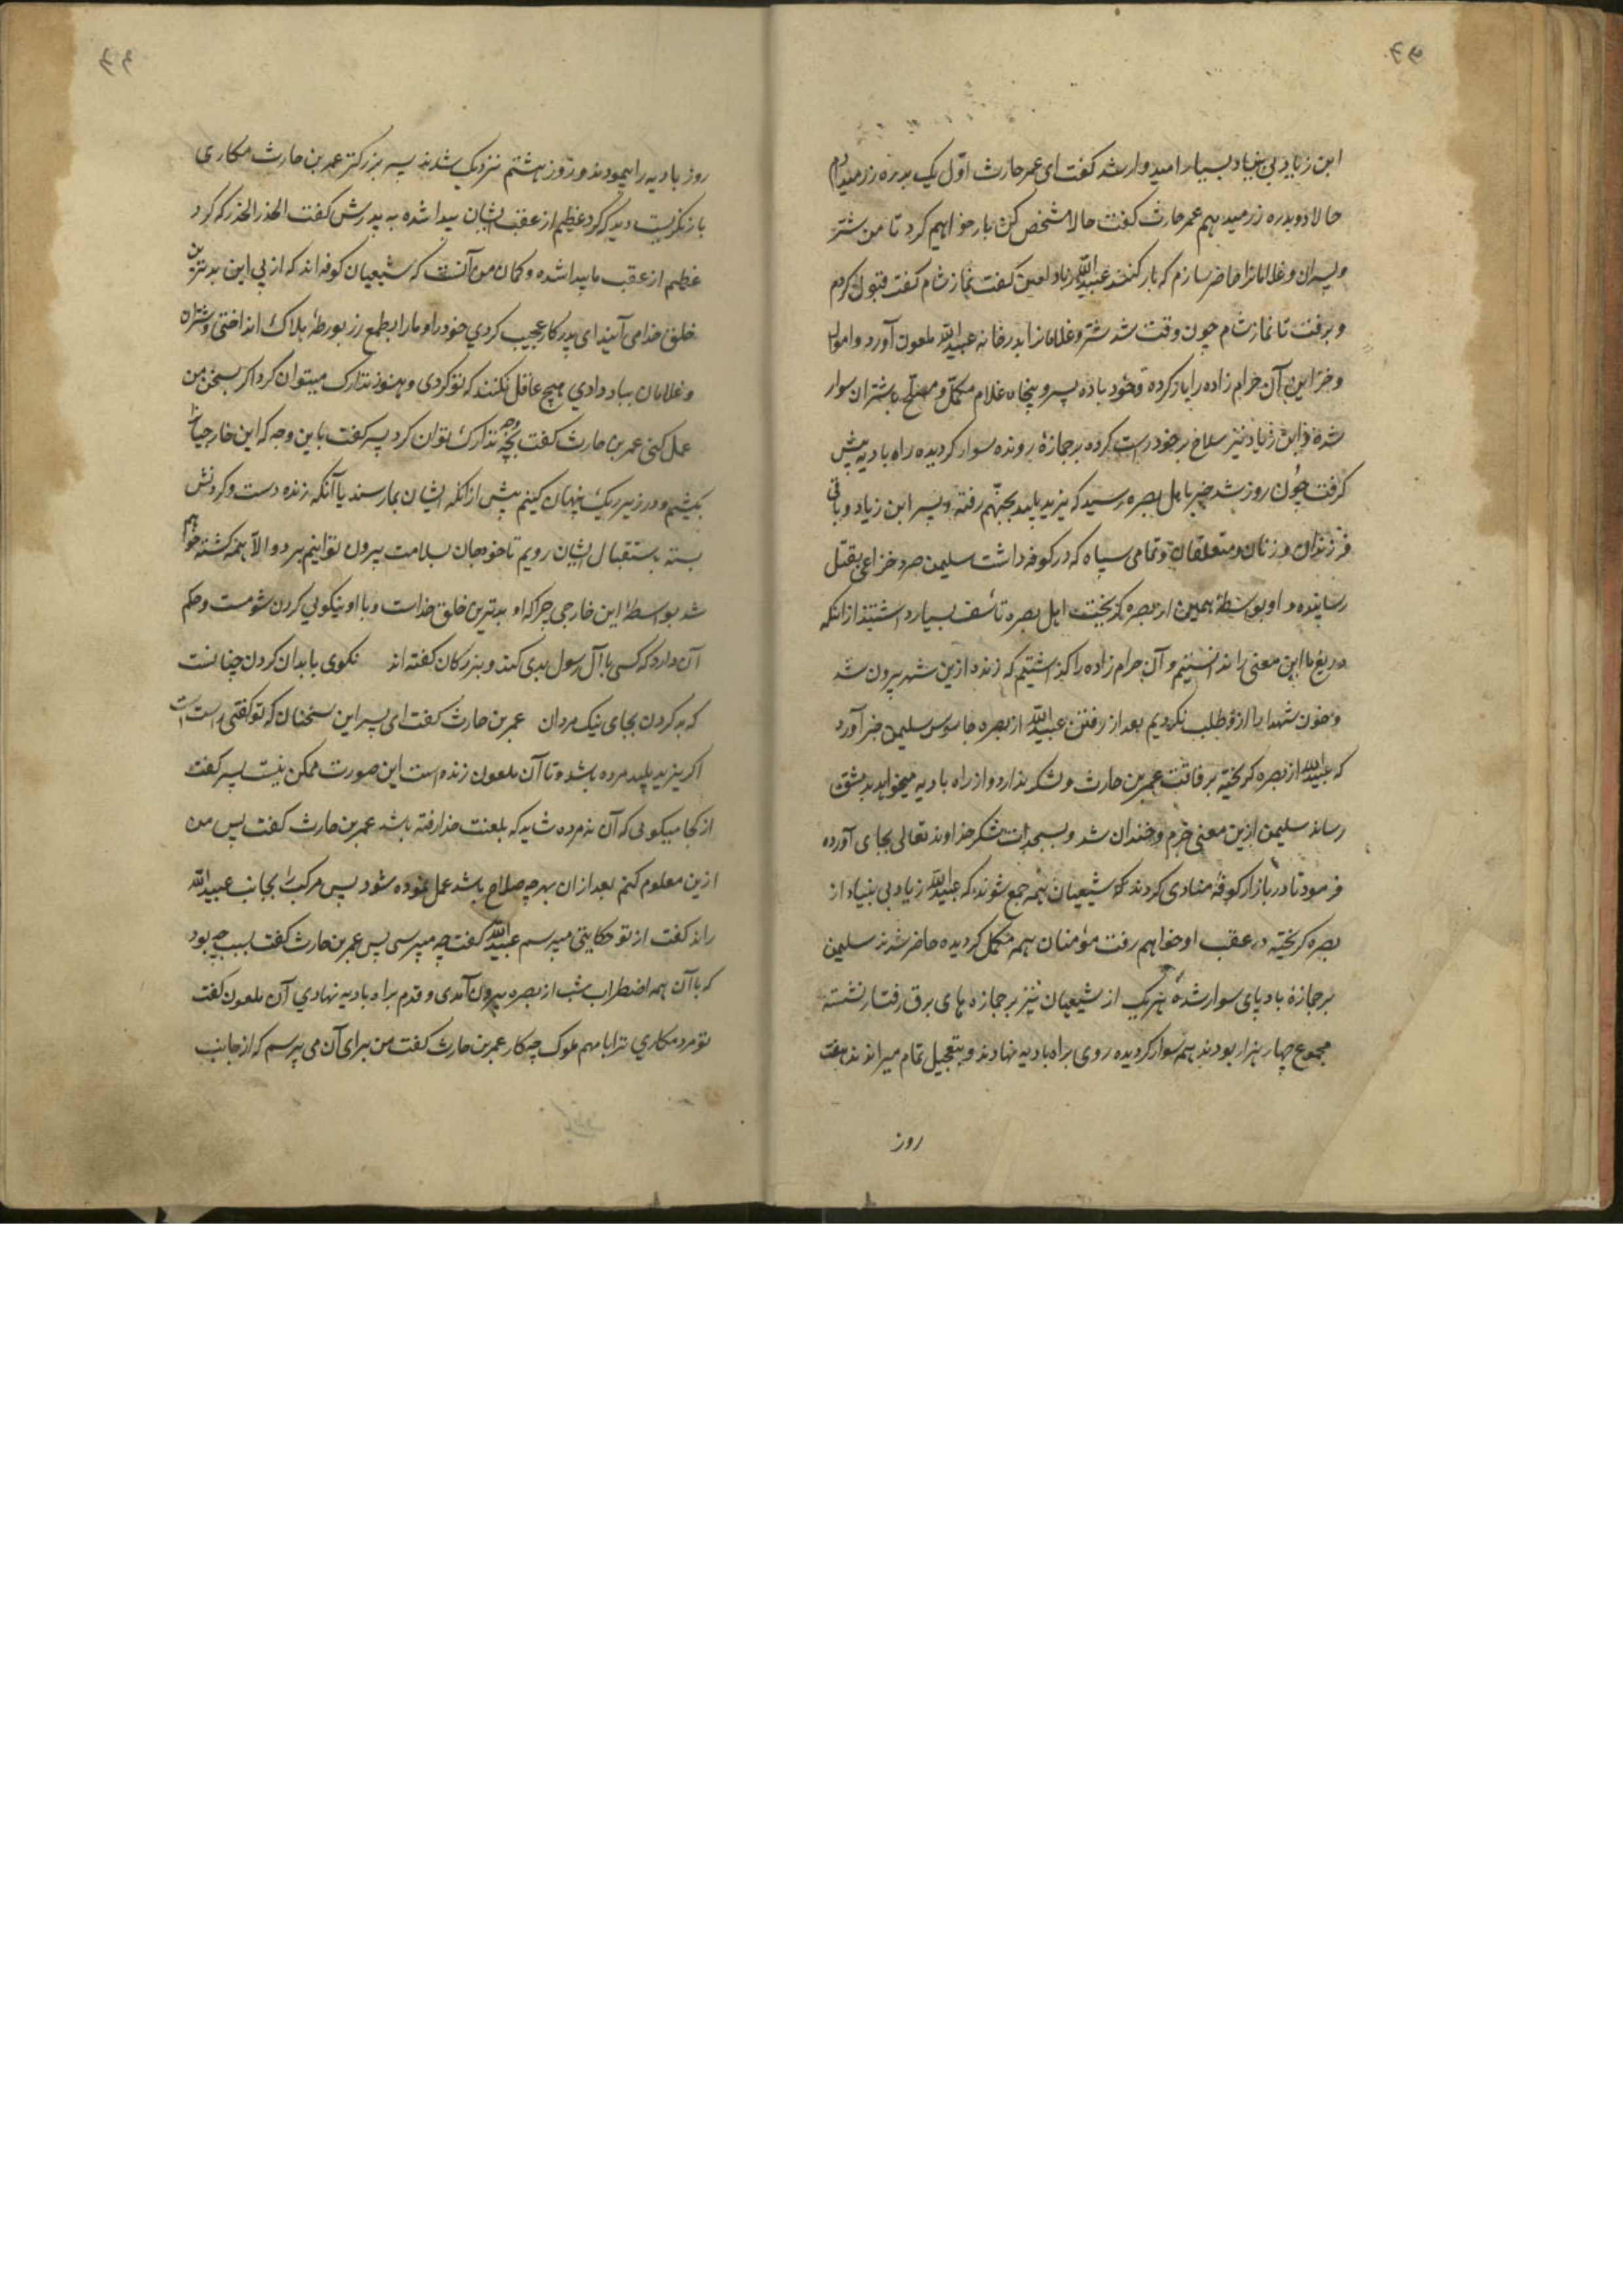 ابن زیاد بی بنیاد بسیار امیدوار شد کفت ای عمر حارث اوّل یک بدره زر میدادم
حالا دو بدره زر میدهم عمر حارث کفت حالا مشخص کن بار خواهیم کرد تا من شتر
و پسران و غلامانرا حاضر سازم که بار کنند عبیدالله زیاد لعین کفت نماز شام کفت قبول کردم
و برفت تا نماز شام چون وقت شد شتر و غلامانرا بدر خانه عبیدالله ملعون آورد و اموال
و خزاین آن حرام زاده را بار کرده و خود با ده پسر و پنجاه غلام مکمّل و مسلّح باشتران سوار
شده و ابن زیاد نیز سلاح بر خود راست کرده بر جمازهٔ رونده سوار کردیده راه بادیه پیش
کرفت چون روز شد خبر باهل بصره رسید که یزید پلید بجهنّم رفته و پسر ابن زیاد و باقی
فرزندان و زنان و متعلقان و تمامی سپاه که در کوفه داشت سلیمن صرد خزاعی بقتل
رسانیده و او بواسطهٔ همین از بصره کریخت اهل بصره تاسف بسیار داشتند از انکه
دریغ ما این معنی را ندانستیم و آن حرام زاده را کذاشتیم که زنده ازین شهر بیرون شد
و خون شهدا را ازو طلب نکردیم بعد از رفتن عبیدالله از بصره جاسوس سلیمن خبر آورد
که عبیدالله از بصره کریخته برفاقت عمر بن حارث و لشکر ندارد و از راه بادیه میخواهد بدمشق
رساند سلیمن ازین معنی خرم و خندان شد و سجدات شکر خداوند تعالی بجای آورده
فرمود تا در بازار کوفه منادی کردند که شیعیان همه جمع شوند که عبیدالله زیاد بی بنیاد از
بصره کریخته در عقب او خواهم رفت مؤمنان همه مکمل کردیده حاضر شدند سلیمن
بر جمازهٔ باد پای سوار شده هر یک از شیعیان نیز بر جمازه های برق رفتار نشسته
مجموع چهار هزار بودند همه سوار کردیده روی براه بادیه نهادند و بتعجیل تمام میراندند هفت
روز
روز بادیه را پیمودند و روز هشتم نزدیک شدند پسر بزرکتر عمر بن حارث مکاری
باز نکریست دید که کرد عظیم از عقب ایشان پیدا شده به پدرش کفت الحذر الحذر که کرد
عظیم از عقب ما پیدا شده و کمان من آنست که شیعیان کوفه اند که از پی این بدترین
خلق خدا می آیند ای پدر کار عجیب کردی خود را و ما را بطمع زر بورطهٔ هلاک انداختی و شتران
و غلامان بباد دادی هیچ عاقل نکند که تو کردی و هنوز تدارک میتوان کرد اکر بسخن من
عمل کنی عمر بن حارث کفت بچه وجه تدارک توان کرد پسر کفت باین وجه که این خارجی را
بکشیم و در زیر ریک پنهان کنیم پیش از انکه ایشان بما رسند یا آنکه زنده دست و کردنش
بسته باستقبال ایشان رویم تا خود جان بسلامت بیرون توانیم برد و الا همه کشته خواهیم
شد بواسطهٔ این خارجی چرا که او بدترین خلق خداست و با او نیکویی کردن شومست و حکم
آن دارد که کسی با آل رسول بدی کند و بزرکان کفته اند نکوی با بدان کردن چنانست
که بد کردن بجای نیک مردان عمر بن حارث کفت ای پسر این سخنان که تو کفتی راست است
اکر یزید پلید مرده باشد و تا آن ملعون زنده است این صورت ممکن نیست پسر کفت
از کجا میکویی که آن نمرده شاید که بلعنت خدا رفته باشد عمر بن حارث کفت پس من
ازین معلوم کنم بعد از ان بهر چه صلاح باشد عمل نموده شود پس مرکب را بجانب عبیدالله
راند کفت از تو حکایتی میپرسم عبیدالله کفت چه میپرسی پس عمر بن حارث کفت سبب چه بود
که با آن همه اضطراب شب از بصره بیرون آمدی و قدم براه بادیه نهادی آن ملعون کفت
تو مرد مکاری ترا با مهم ملوک چکار عمر بن حارث کفت من برای آن می پرسم که از جانب